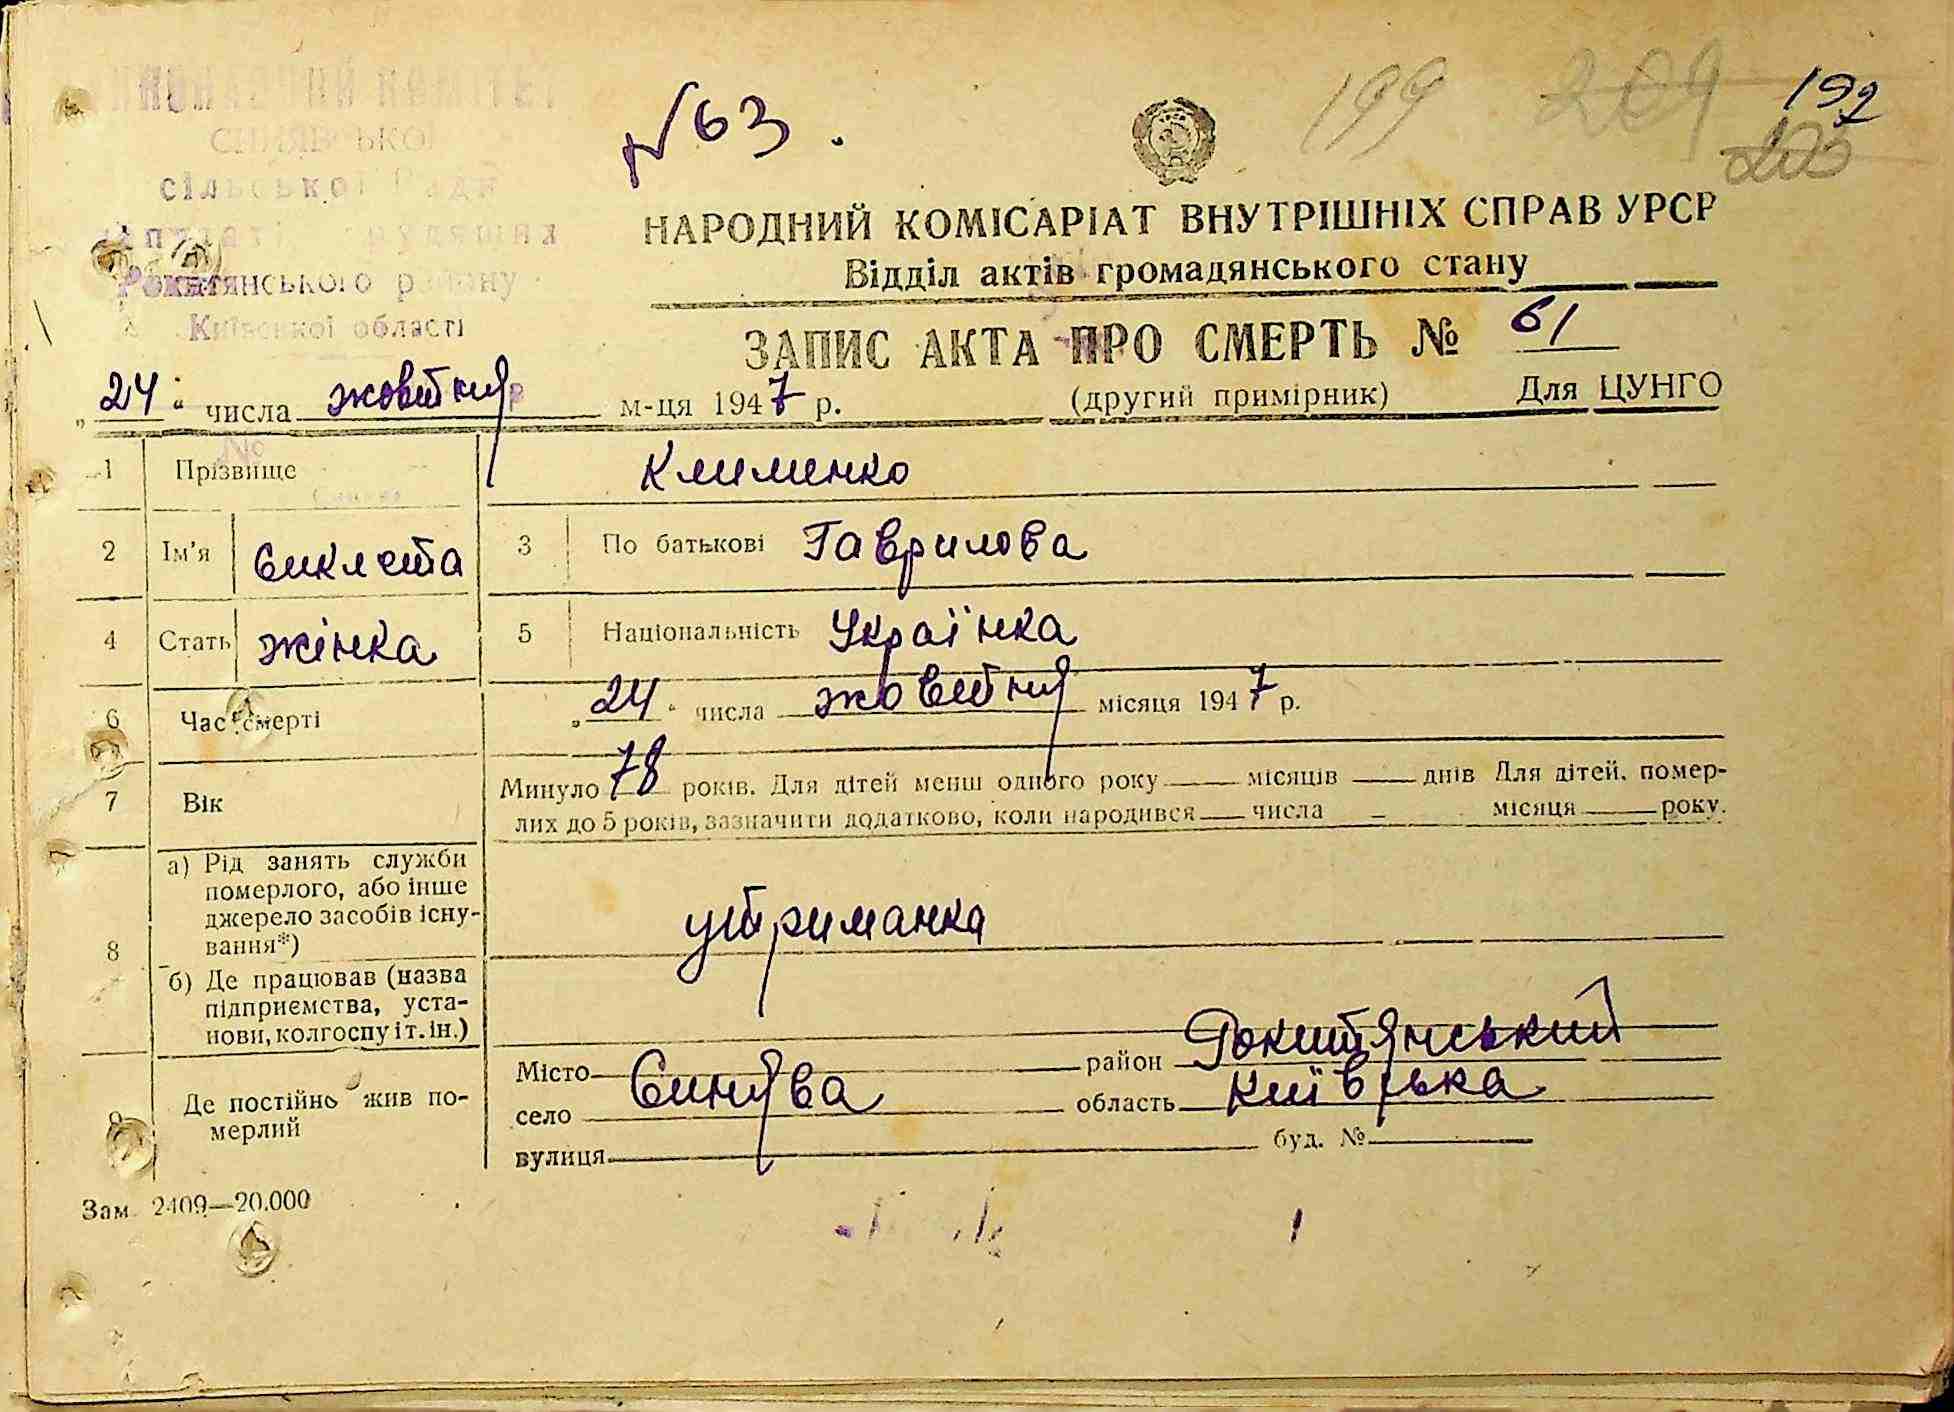 ВИКОНАВЧИЙ КОМІТЕТ
СИНЯВСЬКОЇ
сільської Ради
депутатів трудящих
Рокитянського району
Київської області
N 63.
199 209 192
НАРОДНИЙ КОМІСАРІАТ ВНУТРІШНІХ СПРАВ УРСР
Відділ актів громадянського стану
ЗАПИС АКТА ПРО СМЕРТЬ № 61
„24“ числа жовтня м-ця 1947 р. (другий примірник) Для ЦУНГО
1 Прізвище Клименко
2 Ім'я Сиклета 3 По батькові Гаврилова
4 Стать жінка 5 Національність Українка
6 Час смерті „24“ числа жовтня місяця 1947 р.
7 Вік Минуло 78 років. Для дітей менш одного року місяців днів Для дітей, помер-
лих до 5 років, зазначити додатково, коли народився числа місяця року.
8 а) Рід занять служби
померлого, або інше
джерело засобів існу-
вання*)
утриманка
б) Де працював (назва
підприємства, уста-
нови, колгоспу і т. ін.)
9 Де постійно жив по-
мерлий
Місто район Рокитянський
село Синява область Київська
вулиця буд. №
Зам. 2409—20.000